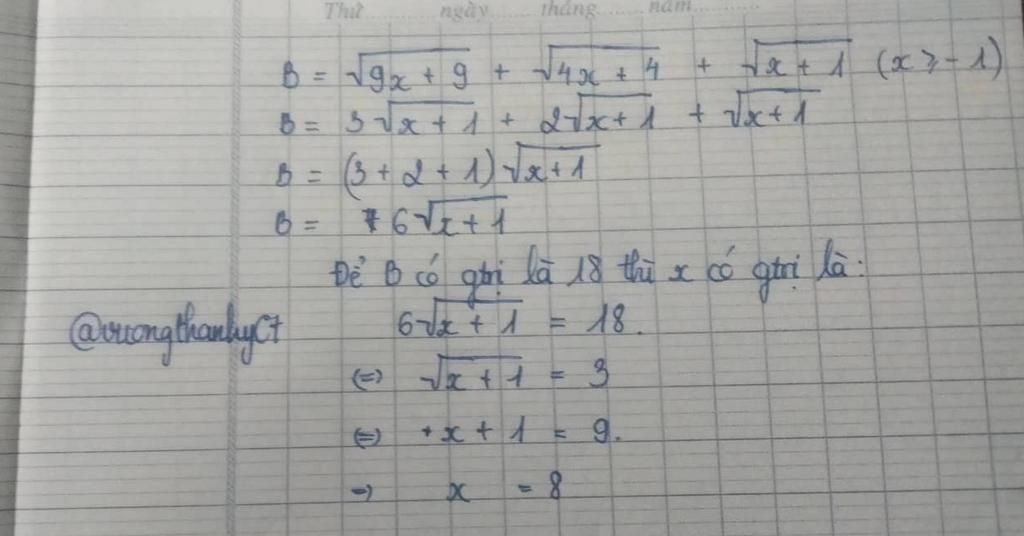 Thứ ngày tháng năm
B = √9x + 9 + √4x + 4 + √x + 1 (x ≥ - 1)
B = 3√x + 1 + 2√x + 1 + √x + 1
B = (3 + 2 + 1) √x + 1
B = 6√x + 1
Để B có gtrị là 18 thì x có gtrị là:
@vuongthanhyct 6√x + 1 = 18.
(=) √x + 1 = 3
(=) x + 1 = 9.
=) x = 8